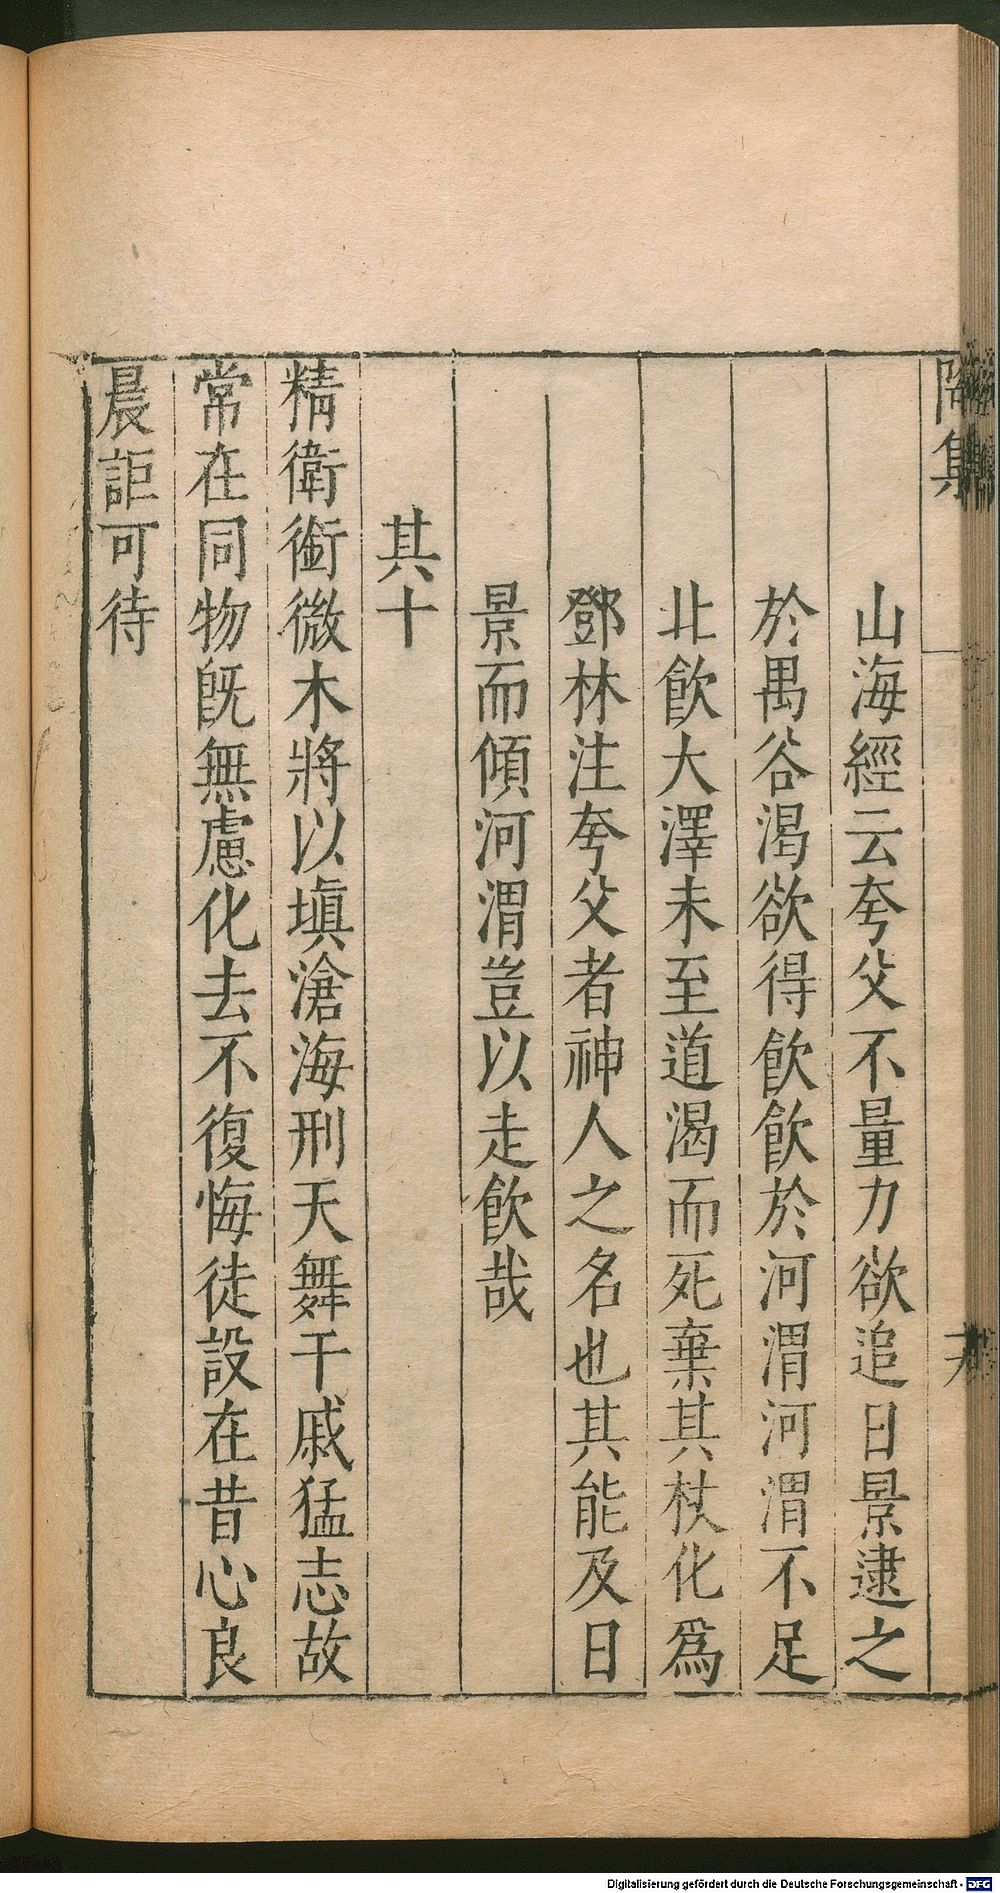 陶集
山海經云夸父不量力欲追日景逮之
於禺谷渴欲得飮飮於河渭河渭不足
北飮大澤未至道渴而死棄其杖化爲
鄧林注夸父者神人之名也其能及日
景而傾河渭豈以走飮哉
其十
精衛銜微木將以塡滄海刑天舞干戚猛志故
常在同物旣無慮化去不復悔徒設在昔心良
晨詎可待
Digitalisierung gefördert durch die Deutsche Forschungsgemeinschaft - DFG